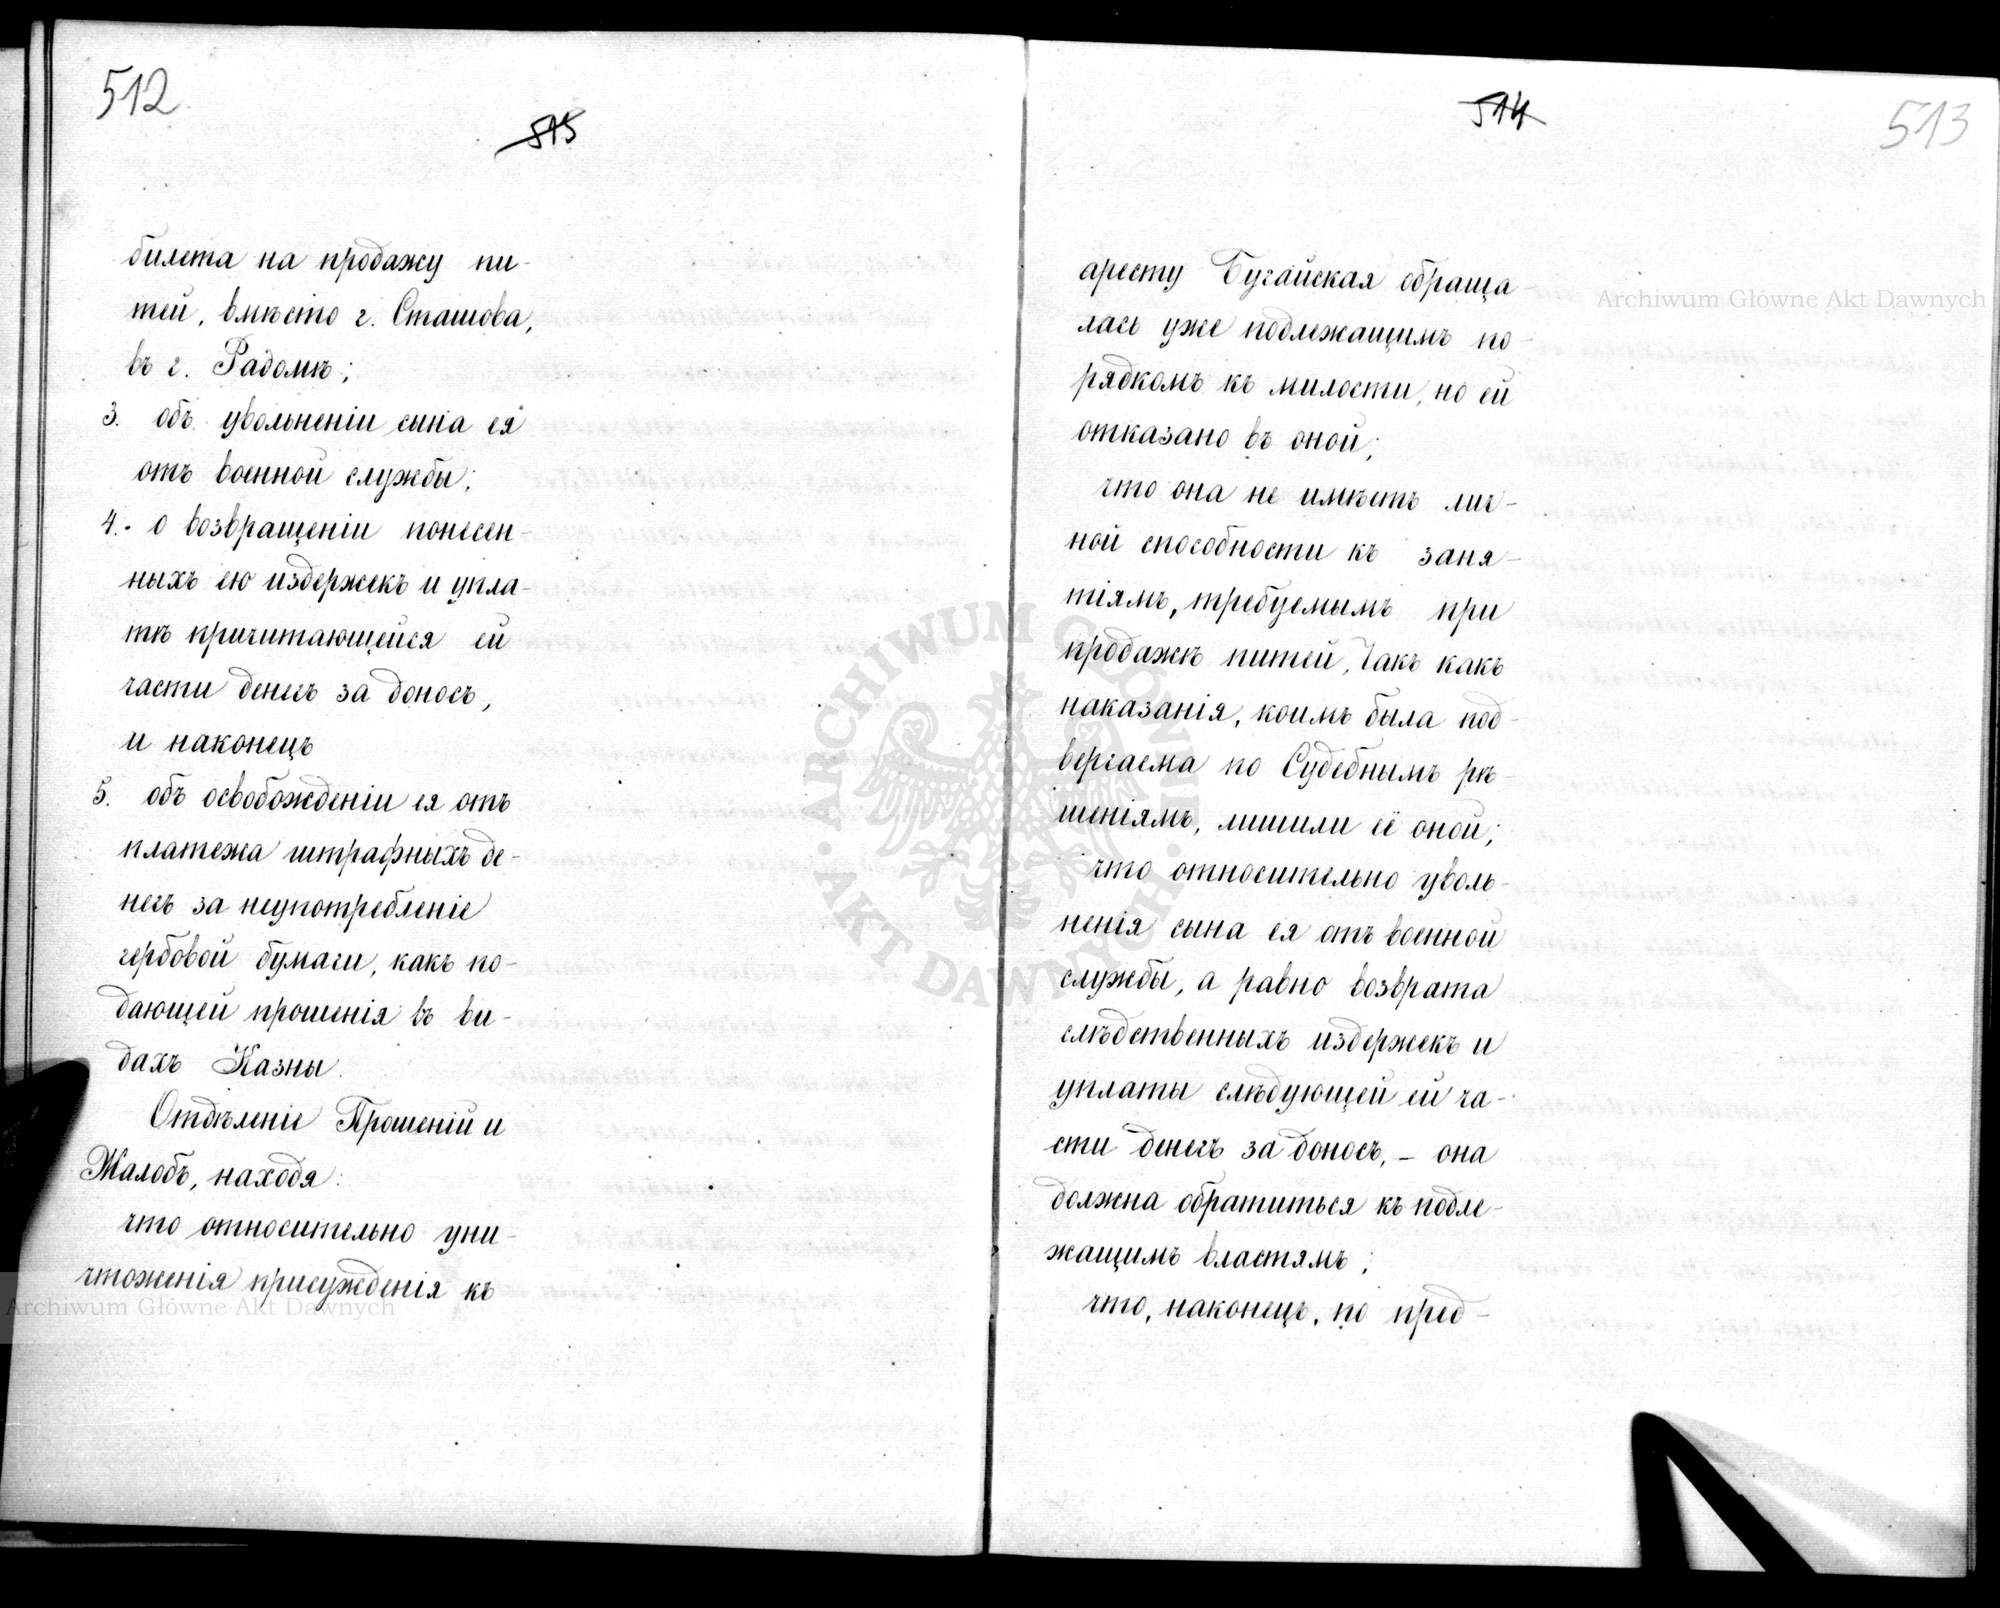 512
515
билета на продажу пи-
тей, вмѣсто г. Сташова,
въ г. Радомѣ;
3. объ увольненіи сына ея
отъ военной службы;
4. о возвращеніи понесен-
ныхъ ею издержекъ и упла-
тѣ причитающейся ей
части денегъ за доносъ,
и наконецъ
5. объ освобожденіи ея отъ
платежа штрафныхъ де-
негъ за неупотребленіе
гербовой бумаги, какъ по-
дающей прошенія въ ви-
дахъ Казны.
Отдѣленіе Прошеній и
Жалобъ, находя:
что относительно уни-
чтоженія присужденія къ
514
513
аресту Бугайская обраща-
лась уже подлежащимъ по-
рядкомъ къ милости, но ей
отказано въ оной;
что она не имѣетъ лич-
ной способности къ заня-
тіямъ, требуемымъ при
продажѣ питей, такъ какъ
наказанія, коимъ была под-
вергаема по Судебнымъ рѣ-
шеніямъ, лишили её оной;
что относительно уволь-
ненія сына ея отъ военной
службы, а равно возврата
слѣдственныхъ издержекъ и
уплаты слѣдующей ей ча-
сти денегъ за доносъ, – она
должна обратиться къ подле-
жащимъ властямъ;
что, наконецъ, по пред-
Archiwum Główne Akt Dawnych
Archiwum Główne Akt Dawnych
ARCHIWUM GŁÓWNE AKT DAWNYCH